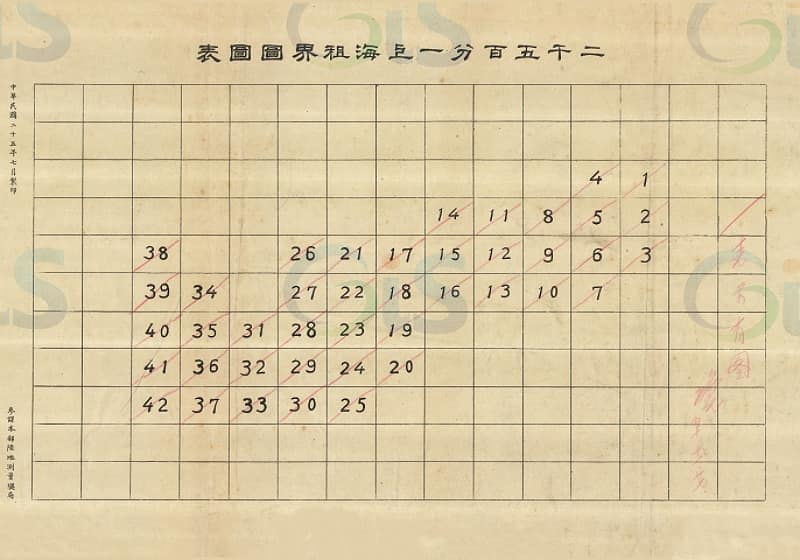 二千五百分一上海租界圖圖表
中華民國二十五年七月製印
4 1
14 11 8 5 2
38 26 21 17 15 12 9 6 3
39 34 27 22 18 16 13 10 7
40 35 31 28 23 19
41 36 32 29 24 20
42 37 33 30 25
表示有图
參謀本部陸地測量總局
GIS